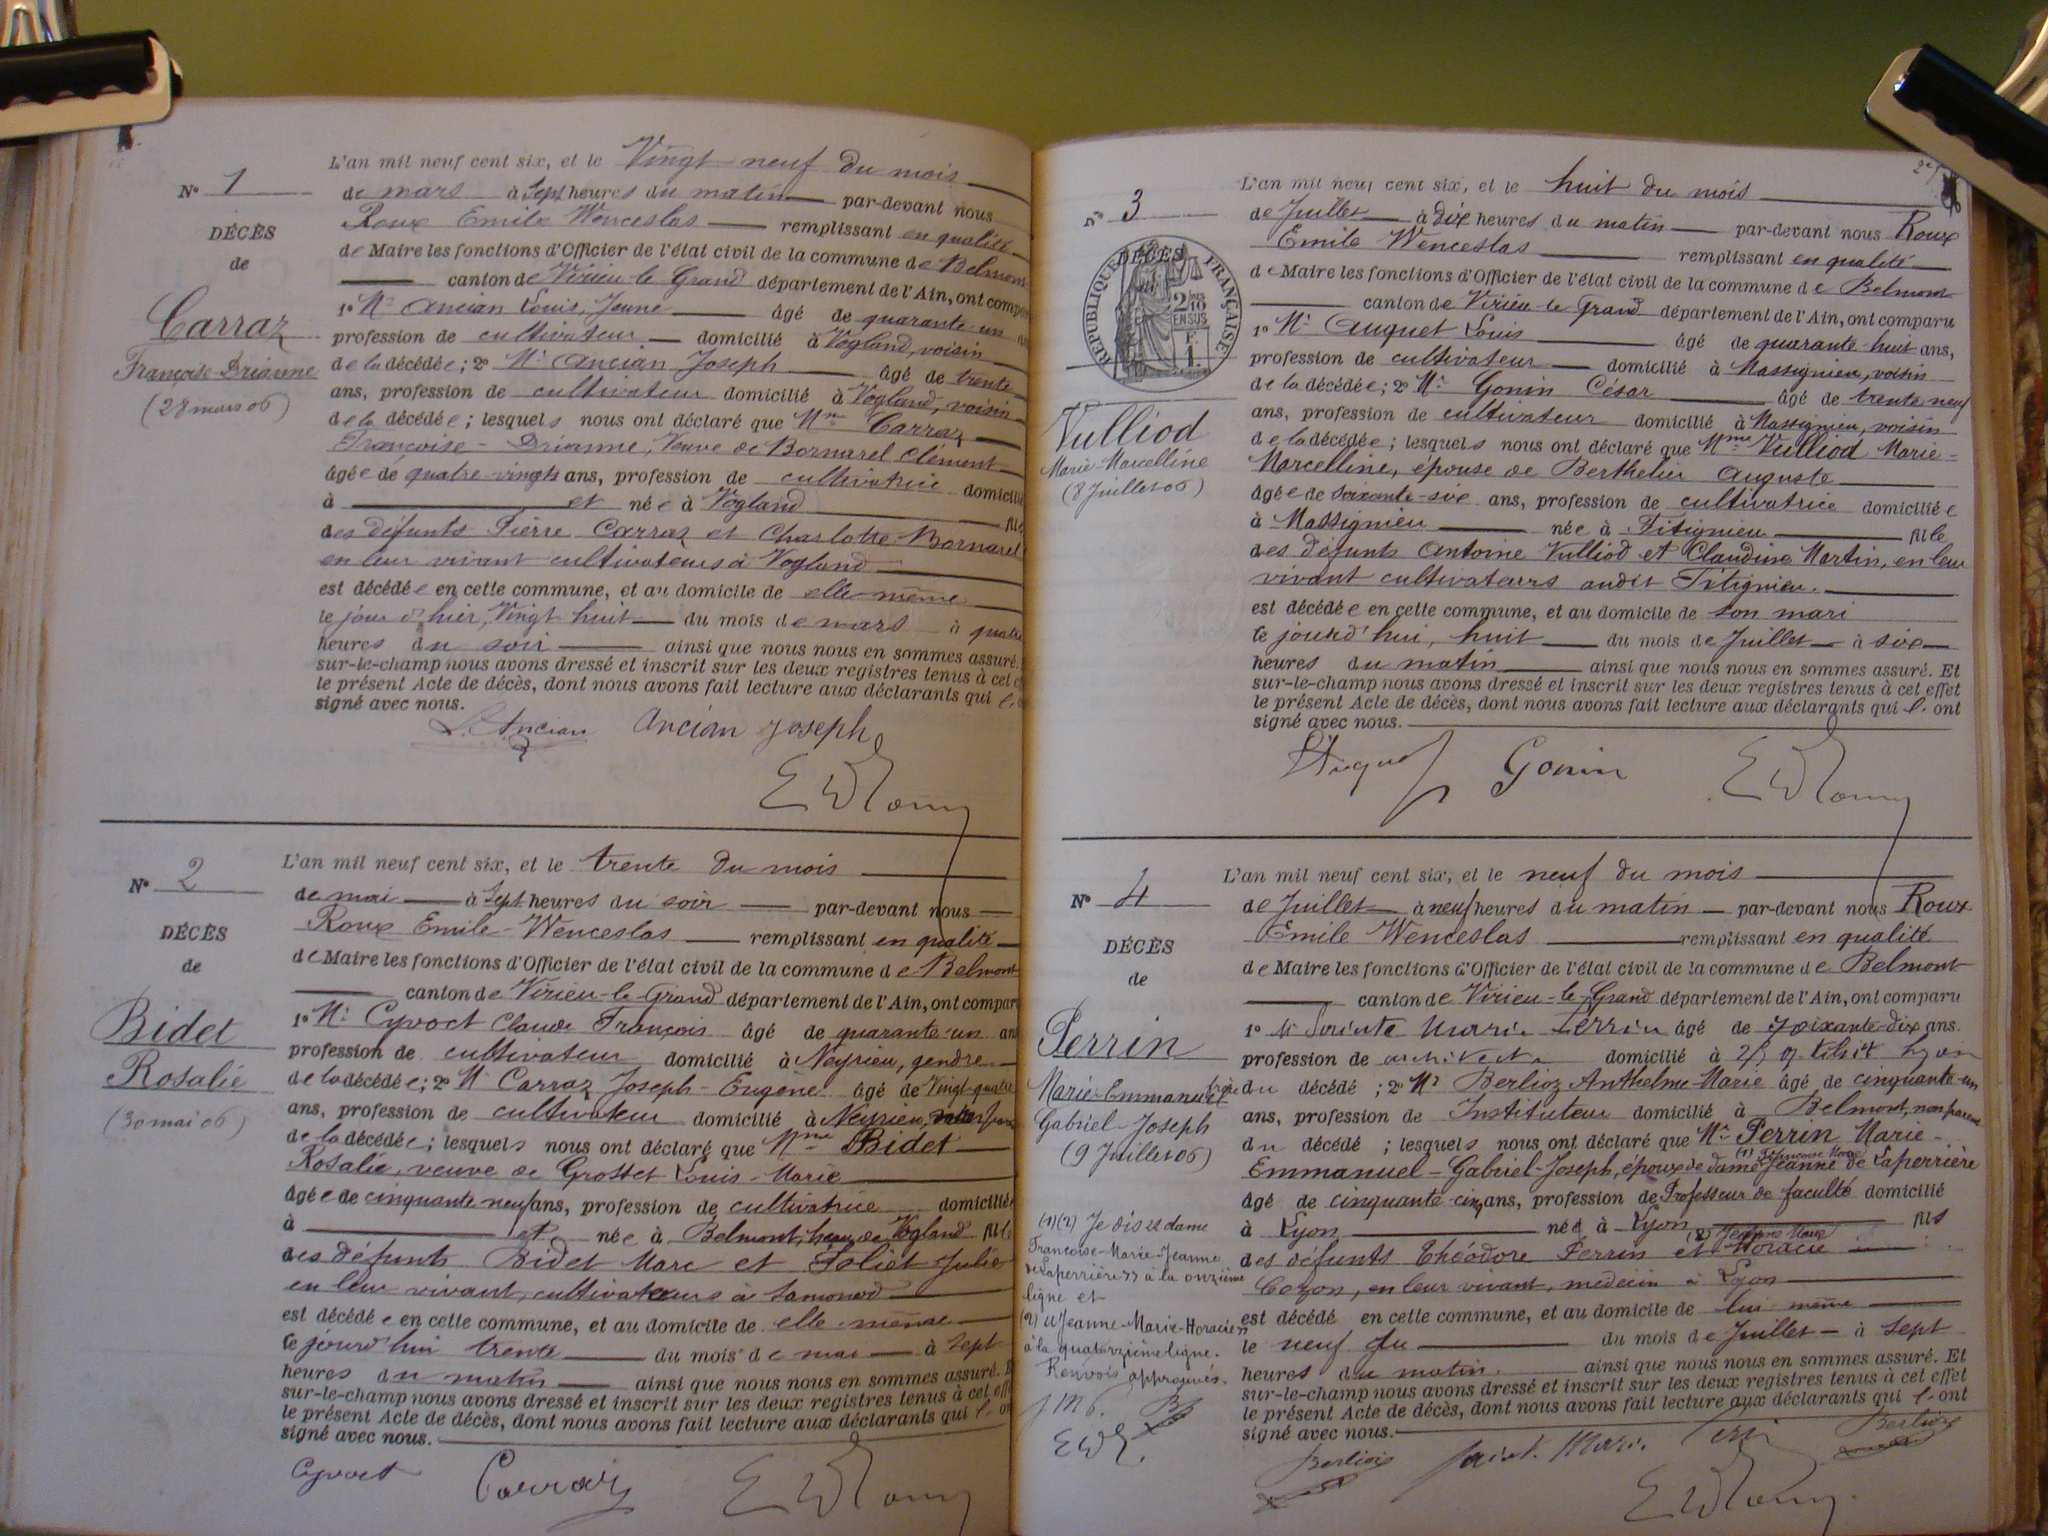 N° 1
DÉCÈS
de
Carraz
Françoise-Drianne
(28 mars 06)
L'an mil neuf cent six, et le Vingt neuf du mois
de mars à Sept heures du matin par-devant nous
Roux Emile Wenceslas remplissant en qualité
de Maire les fonctions d'Officier de l'état civil de la commune de Belmont
canton de Virieu-le Grand département de l'Ain, ont comparu
1° Mr Ancian Louis, Jeune âgé de quarante-un
profession de cultivateur domicilié à Vogland, voisin
de la décédée; 2° Mr Ancian Joseph âgé de trente
ans, profession de cultivateur domicilié à Vogland, voisin
de la décédée; lesquels nous ont déclaré que Mme Carraz
Françoise-Drianne, Veuve de Bornarel Clément
âgée de quatre-vingts ans, profession de cultivatrice domicilié
à et née à Vogland fille
des défunts Pierre Carraz et Charlotte Bornarel
en leur vivant cultivateurs à Vogland
est décédée en cette commune, et au domicile de elle-même
le jour d'hier, Vingt huit du mois de mars à quatre
heures du soir ainsi que nous nous en sommes assuré.
sur-le-champ nous avons dressé et inscrit sur les deux registres tenus à cet
le présent Acte de décès, dont nous avons fait lecture aux déclarants qui l'
signé avec nous.
L. Ancian Ancian Joseph
N° 2
DÉCÈS
de
Bidet
Rosalie
(30 mai 06)
L'an mil neuf cent six, et le trente du mois
de mai à Sept heures du soir par-devant nous
Roux Emile-Wenceslas remplissant en qualité
de Maire les fonctions d'Officier de l'état civil de la commune de Belmont
canton de Virieu-le-Grand département de l'Ain, ont comparu
1° Mr Cyvoct Claude François âgé de quarante-un ans
profession de cultivateur domicilié à Neyrieu, gendre
de la décédée; 2° Mr Carraz Joseph-Eugene âgé de Vingt-quatre
ans, profession de cultivateur domicilié à Neyrieu,
de la décédée; lesquels nous ont déclaré que Mme Bidet
Rosalie, veuve de Grosset Louis-Marie
âgée de cinquante neuf ans, profession de cultivatrice domiciliée
à et née à Belmont, hau de Vogland fille
des défunts Bidet Marc et Foliet Julie
en leur vivant, cultivateurs à Samonod
est décédée en cette commune, et au domicile de elle-même
le jourd'hui trente du mois de mai à sept
heures du matin ainsi que nous nous en sommes assuré.
sur-le-champ nous avons dressé et inscrit sur les deux registres tenus à cet effet
le présent Acte de décès, dont nous avons fait lecture aux déclarants qui l'
signé avec nous.
Cyvoct Carraz
N° 3
DÉCÈS
RÉPUBLIQUE FRANÇAISE
2/10 EN SUS
1
Vulliod
Marie-Marcelline
(8 Juillet 06)
L'an mil neuf cent six, et le huit du mois
de Juillet à dix heures du matin par-devant nous Roux
Emile Wenceslas remplissant en qualité
de Maire les fonctions d'Officier de l'état civil de la commune de Belmont
canton de Virieu-le Grand département de l'Ain, ont comparu
1° Mr Auguet Louis âgé de quarante-huit ans,
profession de cultivateur domicilié à Massignieu, voisin
de la décédée; 2° Mr Gonin César âgé de trente neuf
ans, profession de cultivateur domicilié à Massignieu, voisin
de la décédée; lesquels nous ont déclaré que Mme Vulliod Marie-
Marcelline, épouse de Berthelier Auguste
âgée de soixante-six ans, profession de cultivatrice domiciliée
à Massignieu née à Titignieu fille
des défunts Antoine Vulliod et Claudine Martin, en leur
vivant cultivateurs audit Titignieu.
est décédée en cette commune, et au domicile de son mari
le jourd'hui, huit du mois de Juillet à six
heures du matin ainsi que nous nous en sommes assuré. Et
sur-le-champ nous avons dressé et inscrit sur les deux registres tenus à cet effet
le présent Acte de décès, dont nous avons fait lecture aux déclarants qui l'ont
signé avec nous.
Gonin
N° 4
DÉCÈS
de
Perrin
Marie-Emmanuel
Gabriel-Joseph
(9 Juillet 06)
L'an mil neuf cent six, et le neuf du mois
de Juillet à neuf heures du matin par-devant nous Roux
Emile Wenceslas remplissant en qualité
de Maire les fonctions d'Officier de l'état civil de la commune de Belmont
canton de Virieu-le-Grand département de l'Ain, ont comparu
1° Mr Sainte Marie Perrin âgé de soixante-dix ans.
profession de architecte domicilié à Lyon
frère du décédé; 2° Mr Berlioz Anthelme-Marie âgé de cinquante-un
ans, profession de Instituteur domicilié à Belmont, non parent
du décédé; lesquels nous ont déclaré que Mr Perrin Marie-
Emmanuel-Gabriel-Joseph, époux de dame (1) Françoise Marie Jeanne de Laperrière
âgé de cinquante-cinq ans, profession de Professeur de faculté domicilié
à Lyon né à Lyon fils
des défunts Théodore Perrin et (2) Jeanne Marie Horacie
Cozon, en leur vivant, medecin à Lyon
est décédé en cette commune, et au domicile de lui-même
le neuf du du mois de Juillet à sept
heures du matin. ainsi que nous nous en sommes assuré. Et
sur-le-champ nous avons dressé et inscrit sur les deux registres tenus à cet effet
le présent Acte de décès, dont nous avons fait lecture aux déclarants qui l'ont
signé avec nous.
(1)(2) Je dis « dame
Françoise-Marie-Jeanne
de Laperrière » à la onzième
ligne et
(2) « Jeanne-Marie-Horacie »
à la quatorzième ligne.
Renvois approuvés.
Berlioz Berlioz